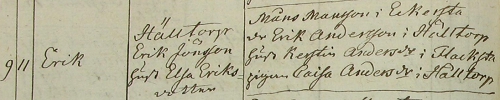 9 11 Erik
Hälltorp
Erik Jönson
hust Elsa Eriks
dotter
Måns Manson i Eckersta
dr Erik Anderson i Hälltorp
hust Kerstin Andersdr i
pigan Caisa Andersdr i Hälltorp